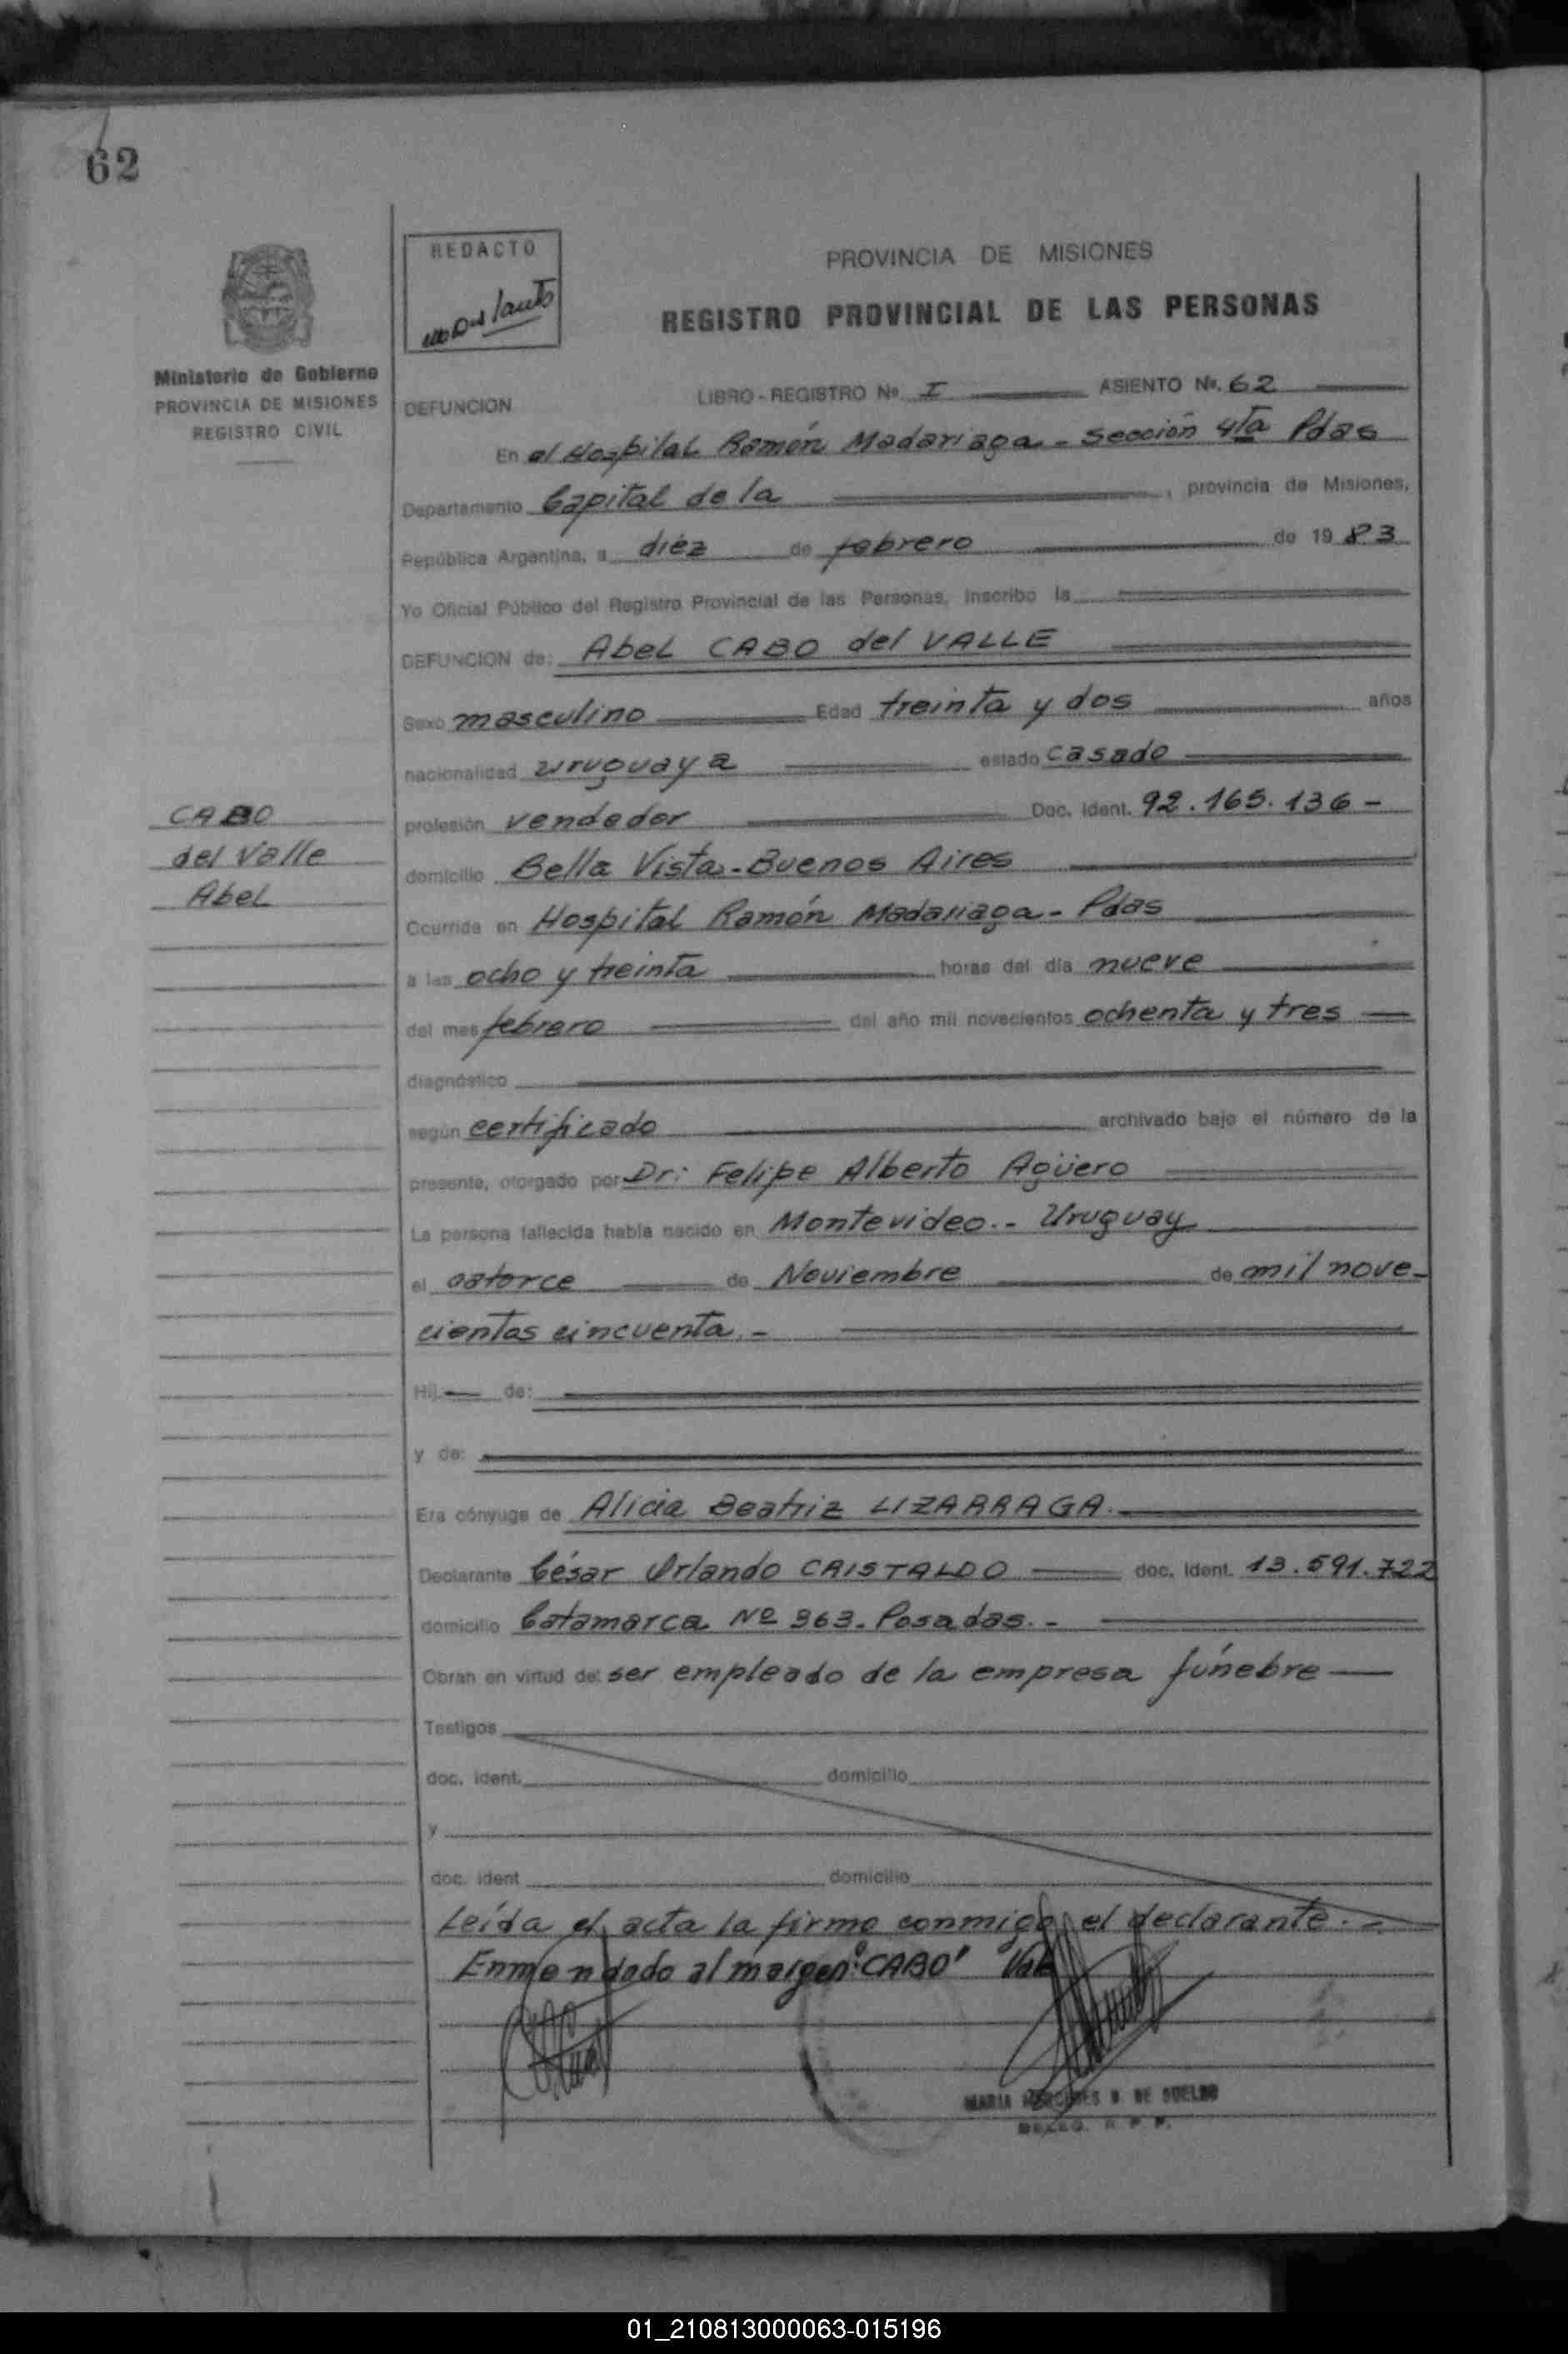 62
REDACTO
PROVINCIA DE MISIONES
REGISTRO PROVINCIAL DE LAS PERSONAS
Ministerio de Gobierno
PROVINCIA DE MISIONES
REGISTRO CIVIL
DEFUNCION
LIBRO-REGISTRO No. I ASIENTO No. 62
En el Hospital Ramón Madariaga - Sección 4ta Pdas
Departamento Capital de la , provincia de Misiones,
República Argentina, a diéz de febrero de 19 83
Yo Oficial Público del Registro Provincial de las Personas, inscribo la
DEFUNCION de: Abel CABO del VALLE
Sexo masculino Edad treinta y dos años
nacionalidad uruguaya estado casado
CABO
del Valle
Abel
profesión vendedor Doc. Ident. 92.165.136 -
domicilio Bella Vista - Buenos Aires
Ocurrida en Hospital Ramón Madariaga - Pdas
a las ocho y treinta horas del día nueve
del mes febrero del año mil novecientos ochenta y tres
diagnóstico
según certificado archivado bajo el número de la
presente, otorgado por Dr: Felipe Alberto Agüero
La persona fallecida había nacido en Montevideo.- Uruguay
el catorce de Noviembre de mil nove-
cientos cincuenta.-
Hij de:
y de:
Era cónyuge de Alicia Beatriz LIZARRAGA.
Declarante César Orlando CRISTALDO doc. ident. 13.591.722
domicilio Catamarca Nº 363. Posadas.-
Obran en virtud de: ser empleado de la empresa fúnebre
Testigos
doc. ident. domicilio
y
doc. ident domicilio
Leída el acta la firma conmigo el declarante.-
Enmendado al margen: "CABO" Vale
MARIA MERCEDES
01_210813000063-015196